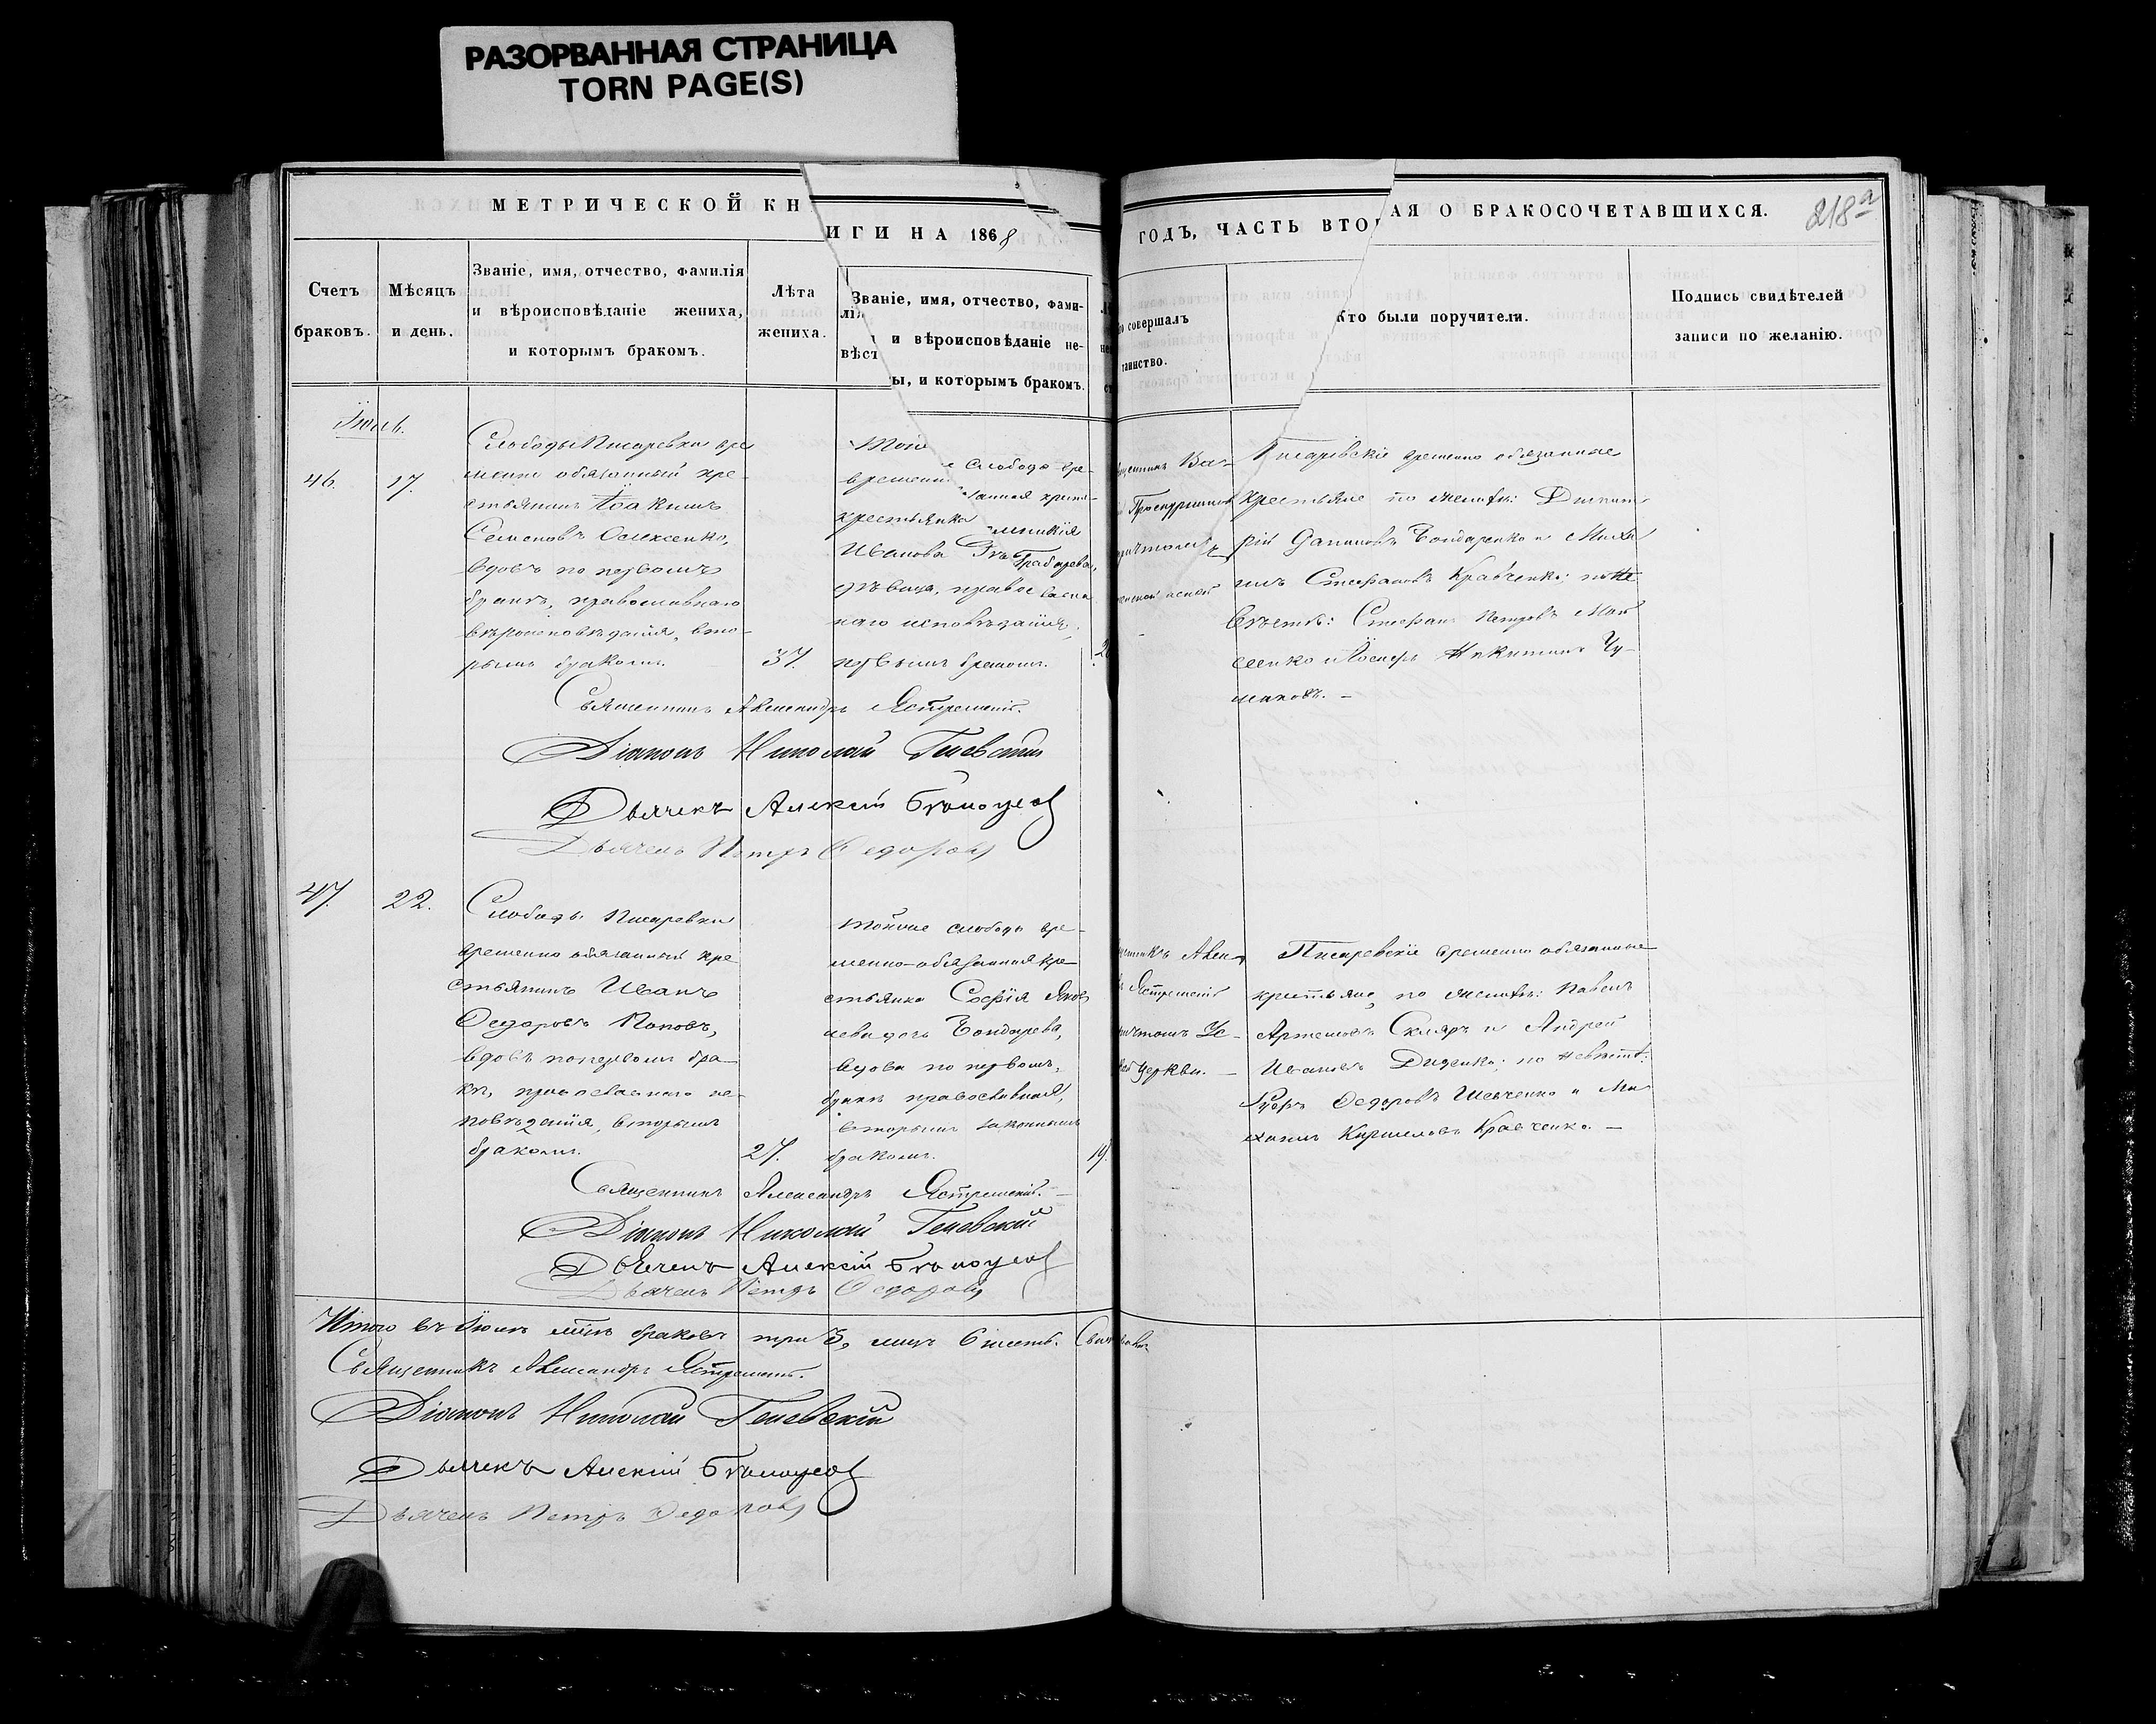 РАЗОРВАННАЯ СТРАНИЦА
TORN PAGE(S)
МЕТРИЧЕСКОЙ КН
ИГИ НА 1868
ГОДЪ, ЧАСТЬ ВТОР
АЯ О БРАКОСОЧЕТАВШИХСЯ.
218а
Счетъ
браковъ.
Мѣсяцъ
и день.
Званіе, имя, отчество, фамилія
и вѣроисповѣданіе жениха,
и которымъ бракомъ.
Лѣта
жениха.
Званіе, имя, отчество, фами-
лія
и вѣроисповѣданіе не-
вѣст
ы, и которымъ бракомъ.
совершалъ
таинство.
Кто были поручители.
Подпись свидѣтелей
записи по желанію.
46.
17.
Слободы Писаревки вре
менно обязанный кре-
стьянинъ Іоакимъ
Семеновъ Олексенко,
вдовъ по первомъ
бракѣ, православнаго
вѣроисповѣданія, вто-
рымъ бракомъ.
37.
слободы вре-
крестьянка
Иванова
дѣвица, православ
наго исповѣданія,
первымъ бракомъ.
Писаревскіе временно обязанные
крестьяне по женихѣ:
Даниловъ Бондаренко и Миха
илъ Стефановъ Кравченко; по не
вѣстѣ: Стефанъ Петровъ
и Іосифъ Никитинъ Чу-
маковъ. —
Священникъ Александръ Ястремскій.
Діаконъ Николай Геневскій
Дьячекъ Алексій Бѣлоусов
Дьячекъ Петръ Ѳедоровъ
47.
22.
Слободы Писаревки
временно обязанный кре
стьянинъ Иванъ
Ѳедоровъ Поповъ,
вдовъ по первомъ бра-
кѣ, православнаго ис-
повѣданія, вторымъ
бракомъ.
27.
тойже слободы вре-
менно-обязанная кре-
стьянка Софія Яков
лева дочь Бондарева,
вдова по первомъ
бракѣ православная,
вторымъ законнымъ
бракомъ.
19.
Ястремскій
причтомъ Ус-
церкви. —
Писаревскіе временно обязанные
крестьяне, по женихѣ: Павелъ
Артемовъ Скляръ и Андрей
Ивановъ Диденко; по невѣстѣ:
Ѳедоровъ Шевченко и Ми
хаилъ Кирилловъ Кравченко. —
Священникъ Александръ Ястремскій. —
Діаконъ Николай Геневскій
Дьячекъ Алексій Бѣлоусов
Дьячекъ Петръ Ѳедоровъ
Итого въ Іюлѣ м-цѣ браковъ три 3, лицъ 6 шесть.
Священникъ Александръ Ястремскій.
Діаконъ Николай Геневскій
Дьячекъ Алексій Бѣлоусов
Дьячекъ Петръ Ѳедоровъ